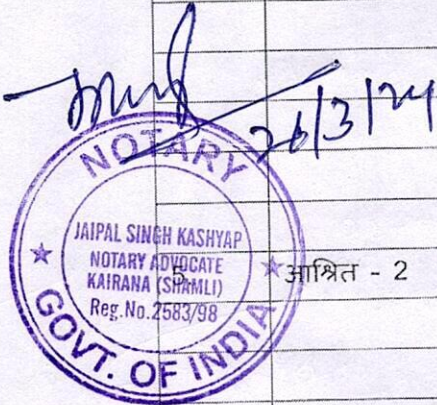 26/3/24
NOTARY
JAIPAL SINGH KASHYAP
NOTARY ADVOCATE
KAIRANA (SHAMLI)
Reg.No.2583/98
GOVT. OF INDIA
5 आश्रित - 2